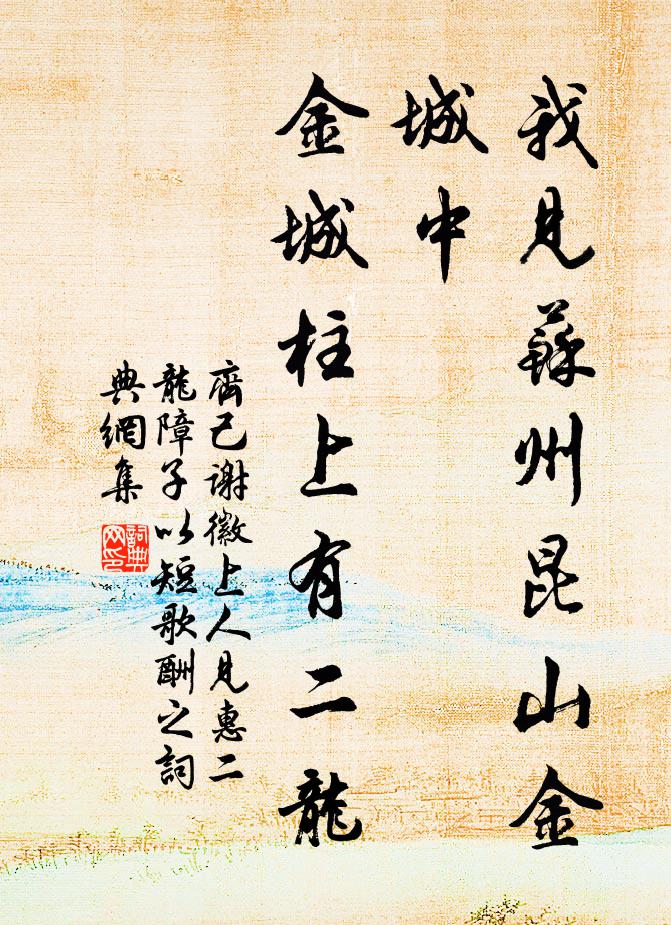 我見蘇州昆山金
城中
金城柱上有二龍
齊己謝徽上人見惠二
龍障子以短歌酬之詞
典網集
詞典
网印